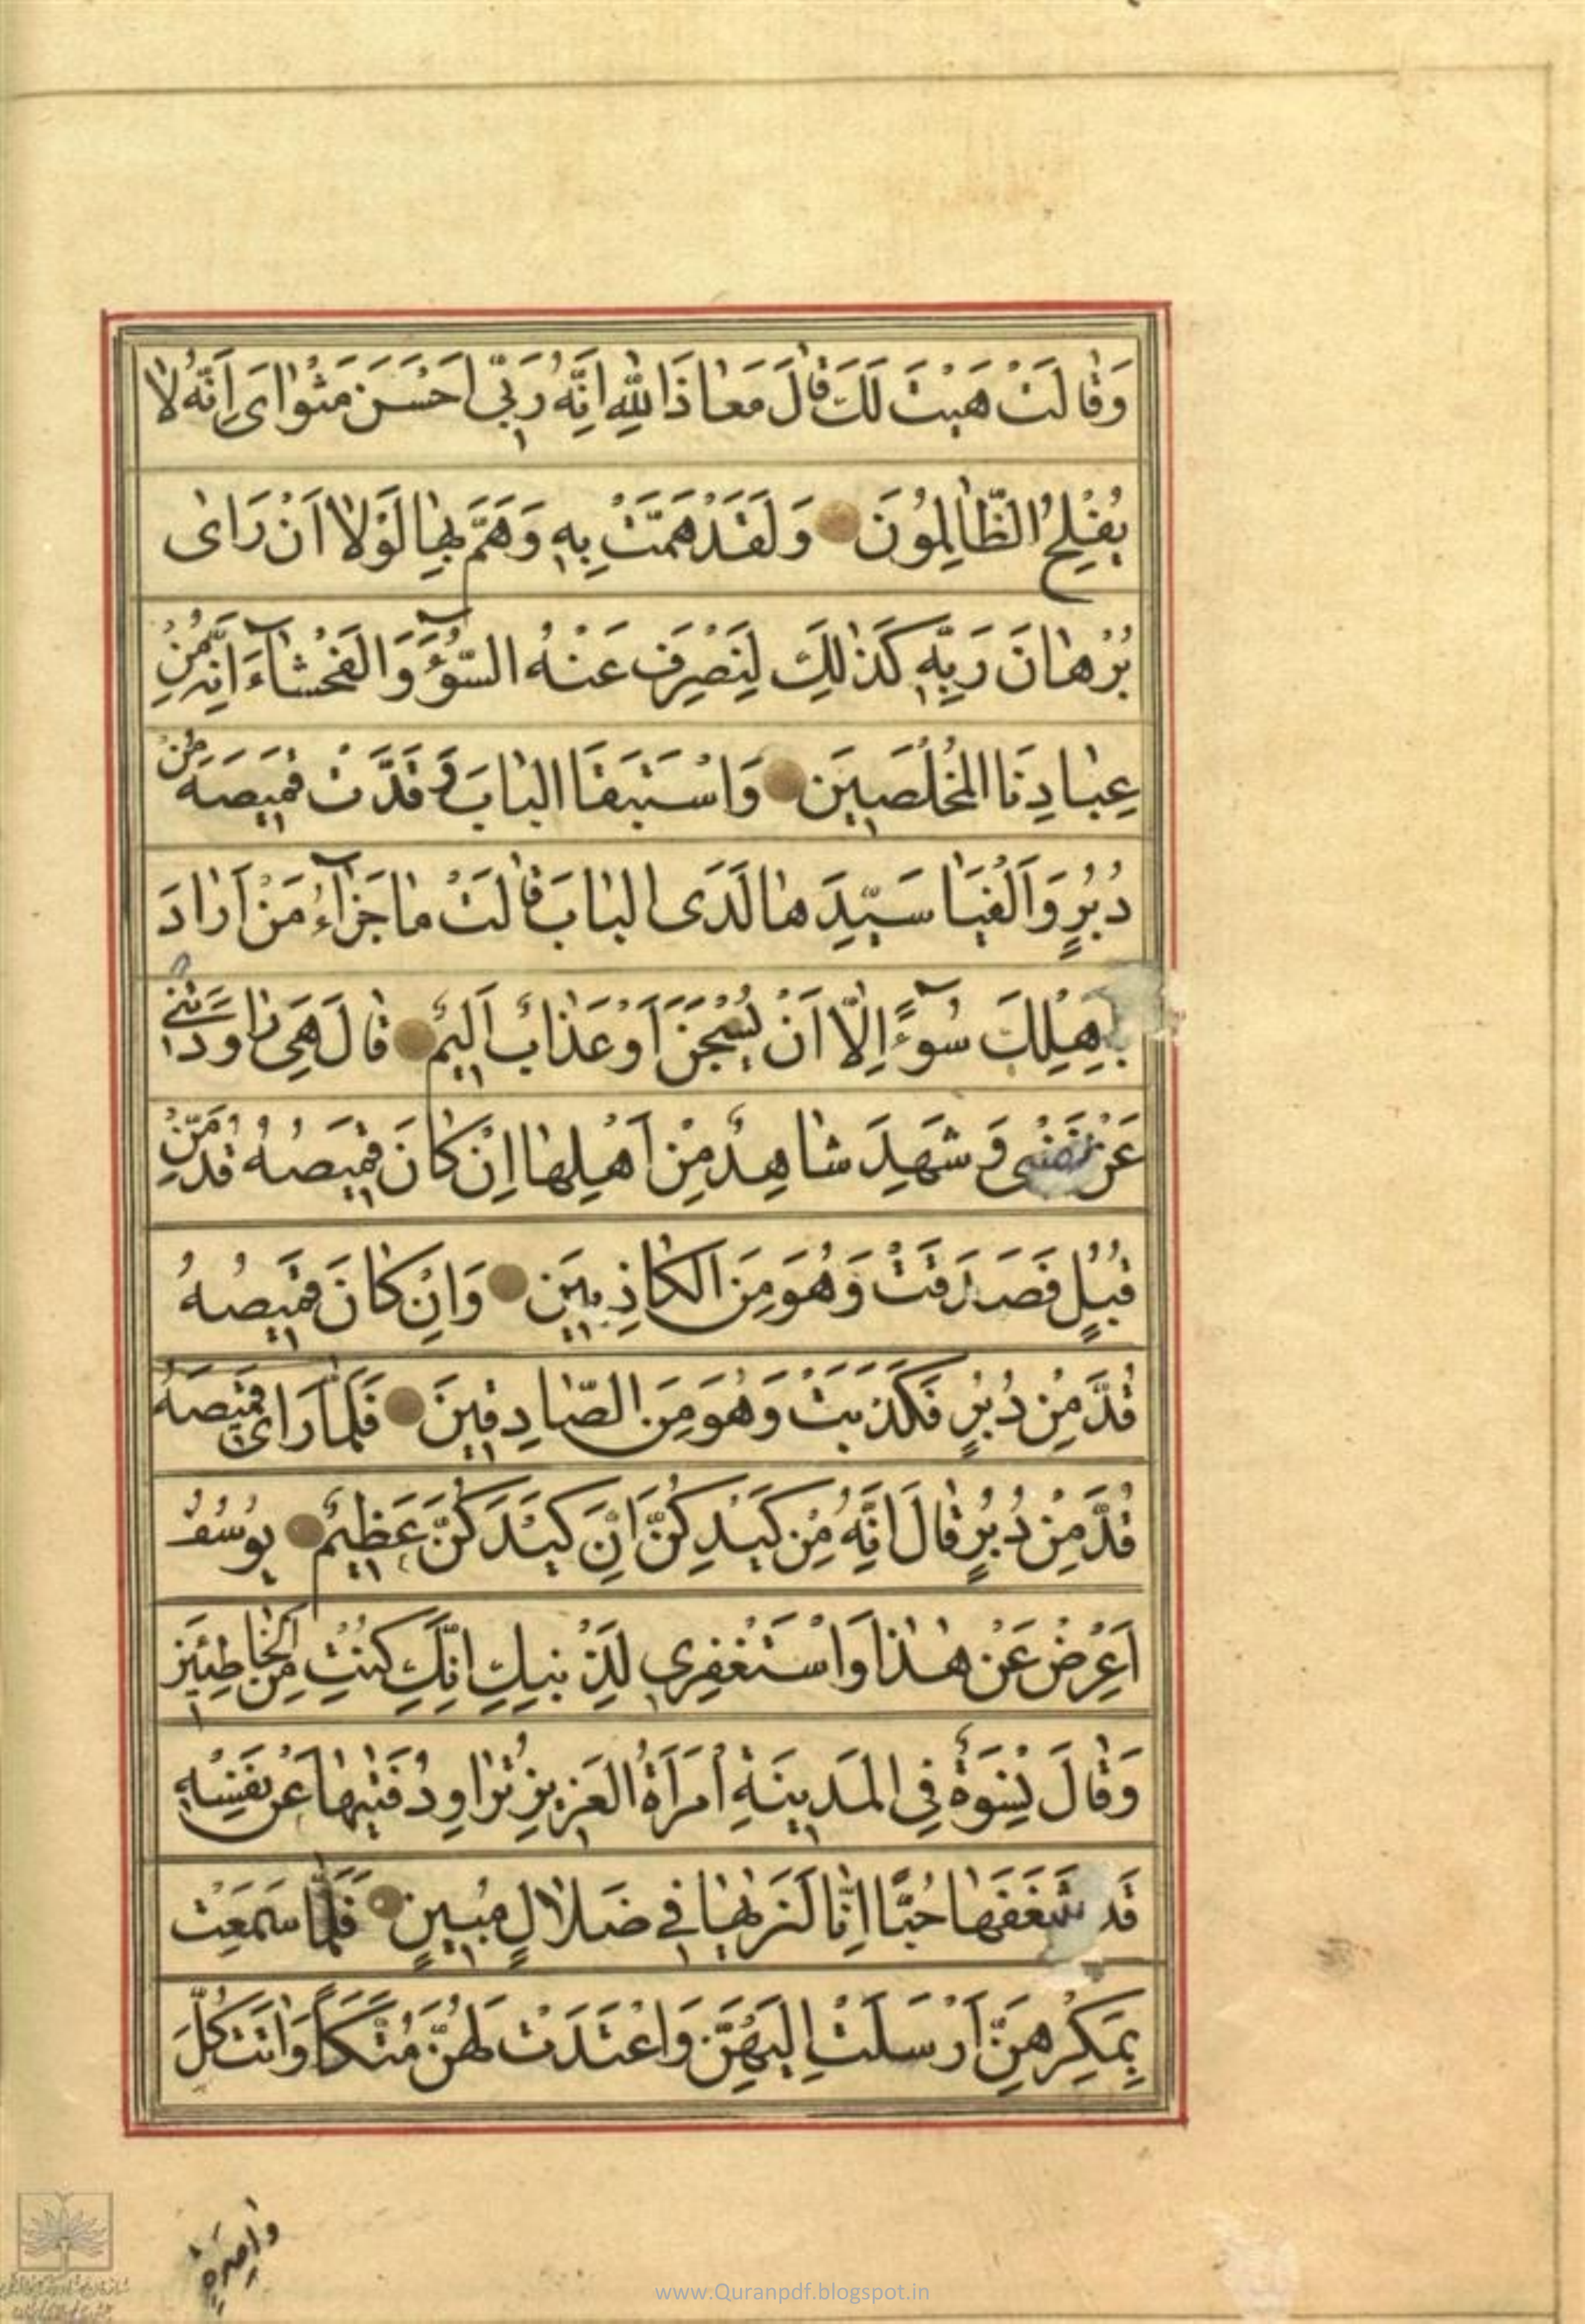 وَقٰالَتْ هَيْتَ لَكَ قٰالَ مَعٰاذَ اللّٰهِ اِنَّهُ رَبّٖى اَحْسَنَ مَثْوٰاىَ اِنَّهُ لٰا
يُفْلِحُ الظّٰالِمُونَ وَلَقَدْ هَمَّتْ بِهٖ وَهَمَّ بِهٰا لَوْلٰا اَنْ رَاٰى
بُرْهٰانَ رَبِّهٖ كَذٰلِكَ لِنَصْرِفَ عَنْهُ السُّوٓءَ وَالْفَحْشٰآءَ اِنَّهُ مِنْ
عِبٰادِنَا الْمُخْلَصٖينَ وَاسْتَبَقَا الْبٰابَ وَقَدَّتْ قَمٖيصَهُ مِنْ
دُبُرٍ وَاَلْفَيٰا سَيِّدَهٰا لَدَى الْبٰابِ قٰالَتْ مٰا جَزٰآءُ مَنْ اَرٰادَ
بِاَهْلِكَ سُوٓءًا اِلّٰا اَنْ يُسْجَنَ اَوْ عَذٰابٌ اَلٖيمٌ قٰالَ هِىَ رٰاوَدَتْنٖى
عَنْ نَفْسٖى وَشَهِدَ شٰاهِدٌ مِنْ اَهْلِهٰا اِنْ كٰانَ قَمٖيصُهُ قُدَّ مِنْ
قُبُلٍ فَصَدَقَتْ وَهُوَ مِنَ الْكٰاذِبٖينَ وَاِنْ كٰانَ قَمٖيصُهُ
قُدَّ مِنْ دُبُرٍ فَكَذَبَتْ وَهُوَ مِنَ الصّٰادِقٖينَ فَلَمّٰا رَاٰى قَمٖيصَهُ
قُدَّ مِنْ دُبُرٍ قٰالَ اِنَّهُ مِنْ كَيْدِكُنَّ اِنَّ كَيْدَكُنَّ عَظٖيمٌ يُوسُفُ
اَعْرِضْ عَنْ هٰذٰا وَاسْتَغْفِرٖى لِذَنْبِكِ اِنَّكِ كُنْتِ مِنَ الْخٰاطِئٖينَ
وَقٰالَ نِسْوَةٌ فِى الْمَدٖينَةِ امْرَاَةُ الْعَزٖيزِ تُرٰاوِدُ فَتٰيهٰا عَنْ نَفْسِهٖ
قَدْ شَغَفَهٰا حُبًّا اِنّٰا لَنَرٰيهٰا فٖى ضَلٰالٍ مُبٖينٍ فَلَمّٰا سَمِعَتْ
بِمَكْرِهِنَّ اَرْسَلَتْ اِلَيْهِنَّ وَاَعْتَدَتْ لَهُنَّ مُتَّكَأً وَاٰتَتْ كُلَّ
www.Quranpdf.blogspot.in